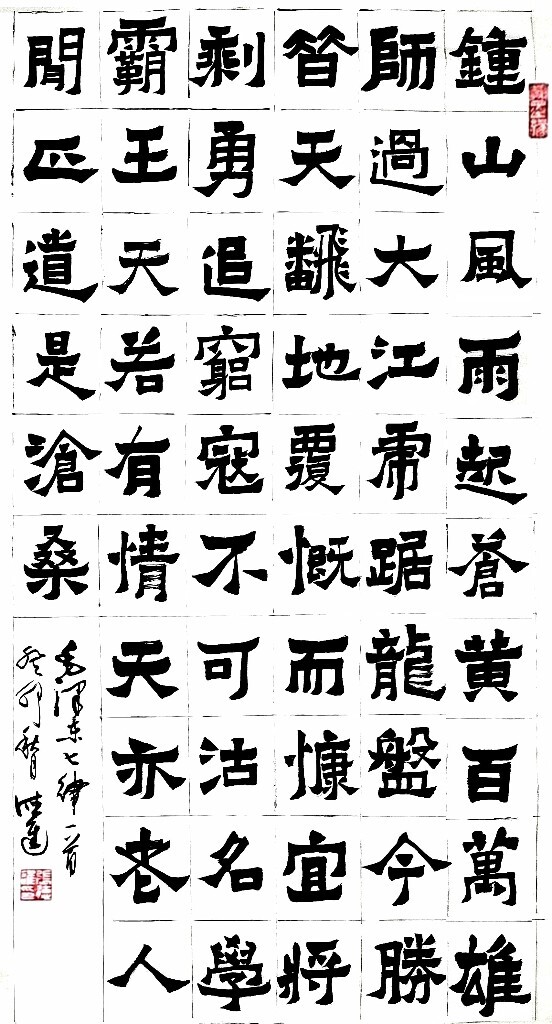 鍾山風雨起蒼黃百萬雄
師過大江虎踞龍盤今勝
昔天飜地覆慨而慷宜將
剩勇追窮寇不可沽名學
霸王天若有情天亦老人
閒正道是滄桑
毛澤東七律一首
癸卯秋月